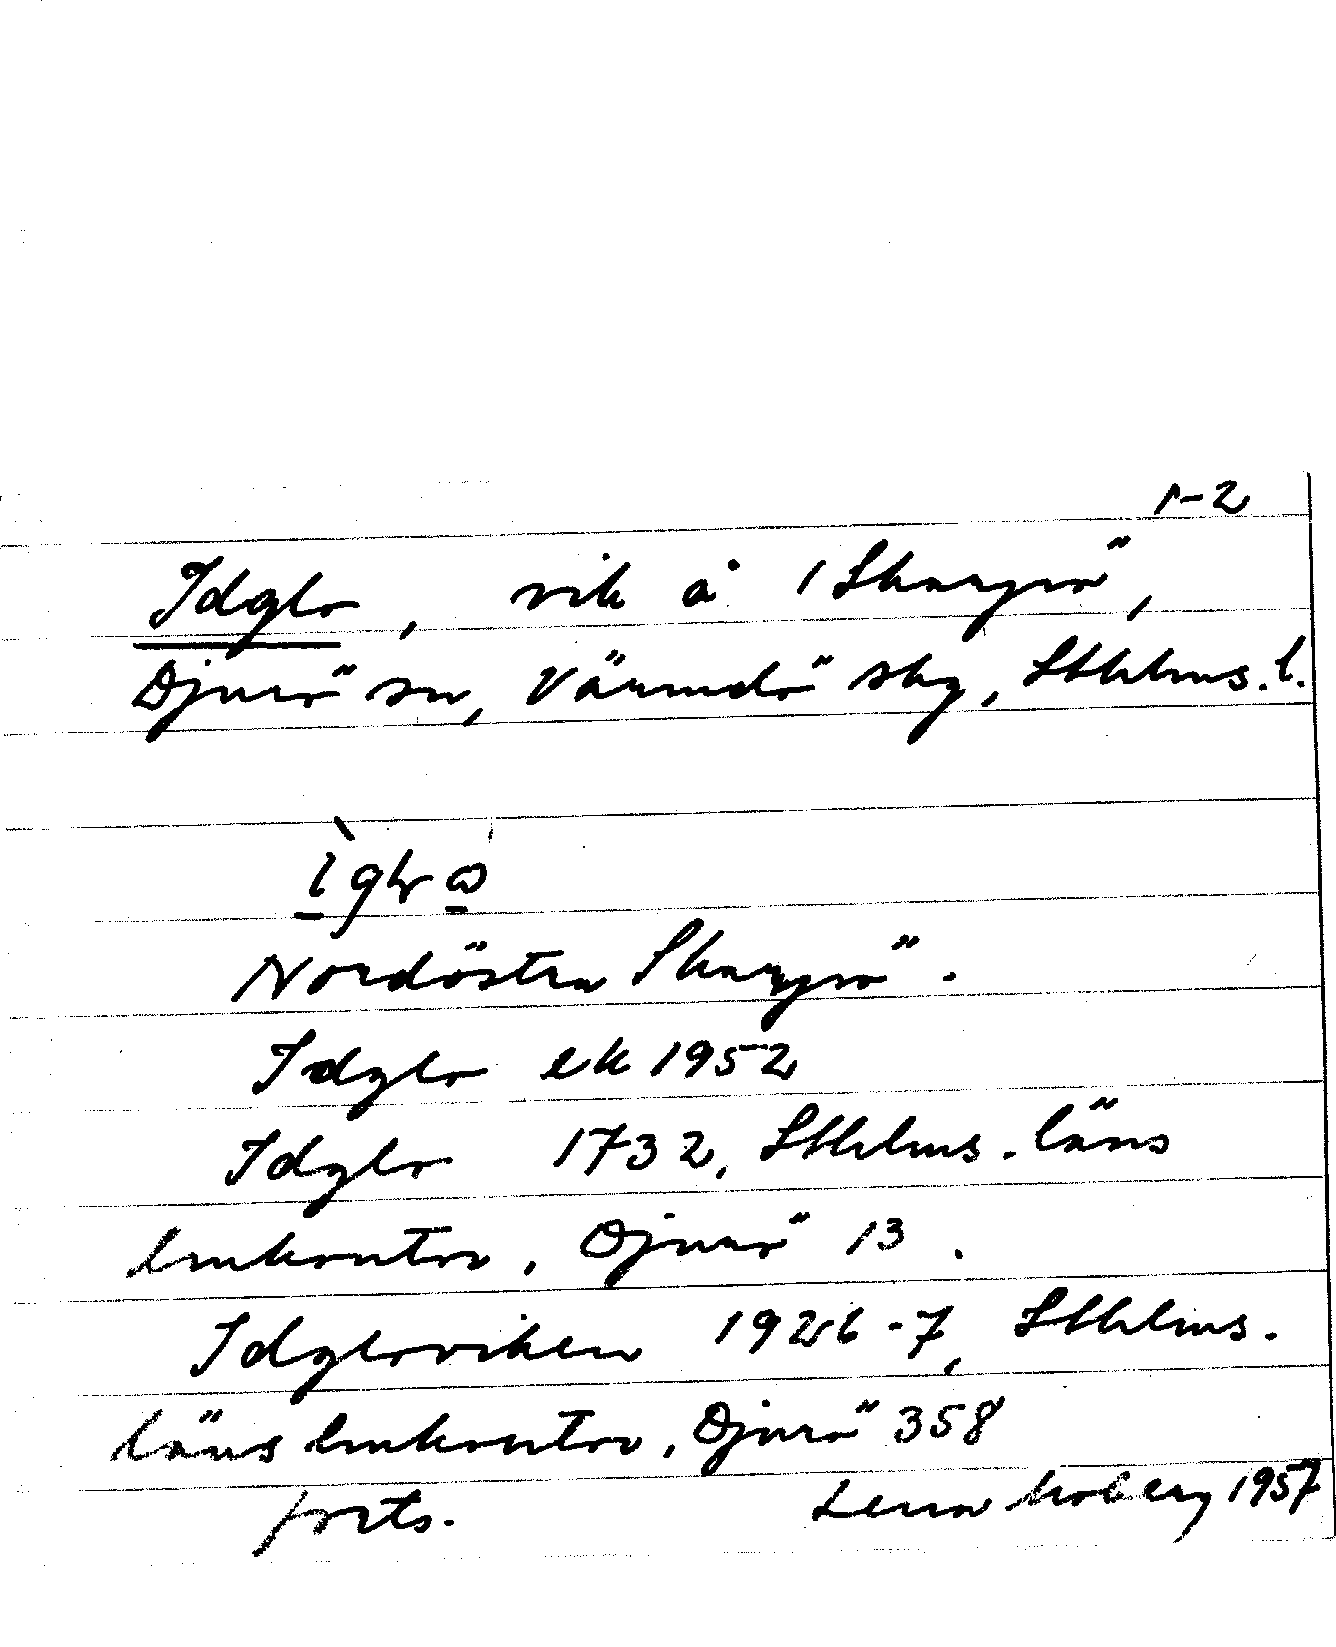 1-2
Idglo, vik å 1 Skarpö,
Djurö sn, Värmdö skg, Sthlms. l.
Nordöstra Skarpö.
Idglo ek 1952
Idglo 1732, Sthlms. läns
lmkontor, Djurö 13.
Idgloviken 1926-7, Sthlms.
läns lmkontor, Djurö 358
forts. Lena Moberg 1957